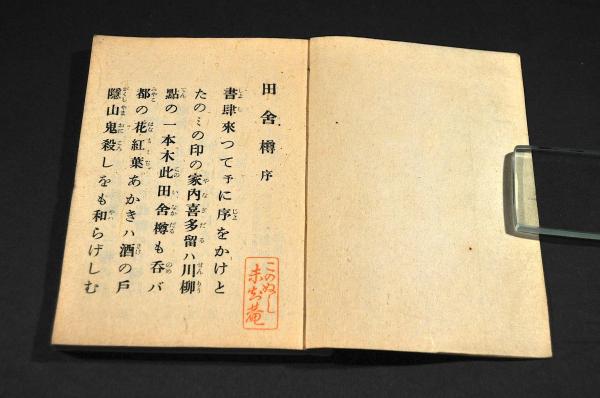 田舍樽序
書肆來つて予に序をかけと
たのミの印の家內喜多留ハ川柳
點の一本木此田舍樽も呑バ
都の花紅葉あかきハ酒の戶
隱山鬼殺しをも和らげしむ
このぬし